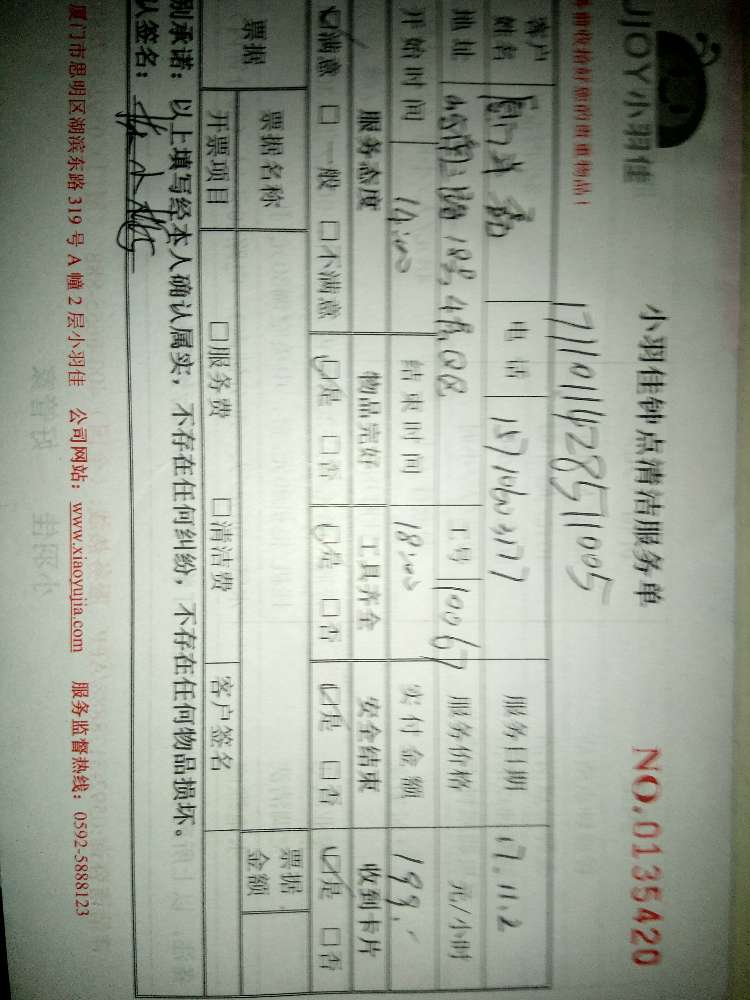 UJOY小羽佳
小羽佳钟点清洁服务单
NO.0135420
收拾好您的贵重物品!
17110114285 11005
客户姓名 电话 服务日期 17.11.2
地址 工号 10067 服务价格 元/小时
开始时间 14:00 结束时间 18:00 实付金额 199.
服务态度 物品完好 工具齐全 安全结束 收到卡片
☑满意 □一般 □不满意 ☑是 □否 ☑是 □否 ☑是 □否 ☑是 □否
票据 票据名称 票据金额
开票项目 □服务费 □清洁费 客户签名
别承诺:以上填写经本人确认属实,不存在任何纠纷,不存在任何物品损坏。
认签名:
厦门市思明区湖滨东路 319 号 A 幢 2 层小羽佳 公司网站:www.xiaoyujia.com 服务监督热线:0592-5888123